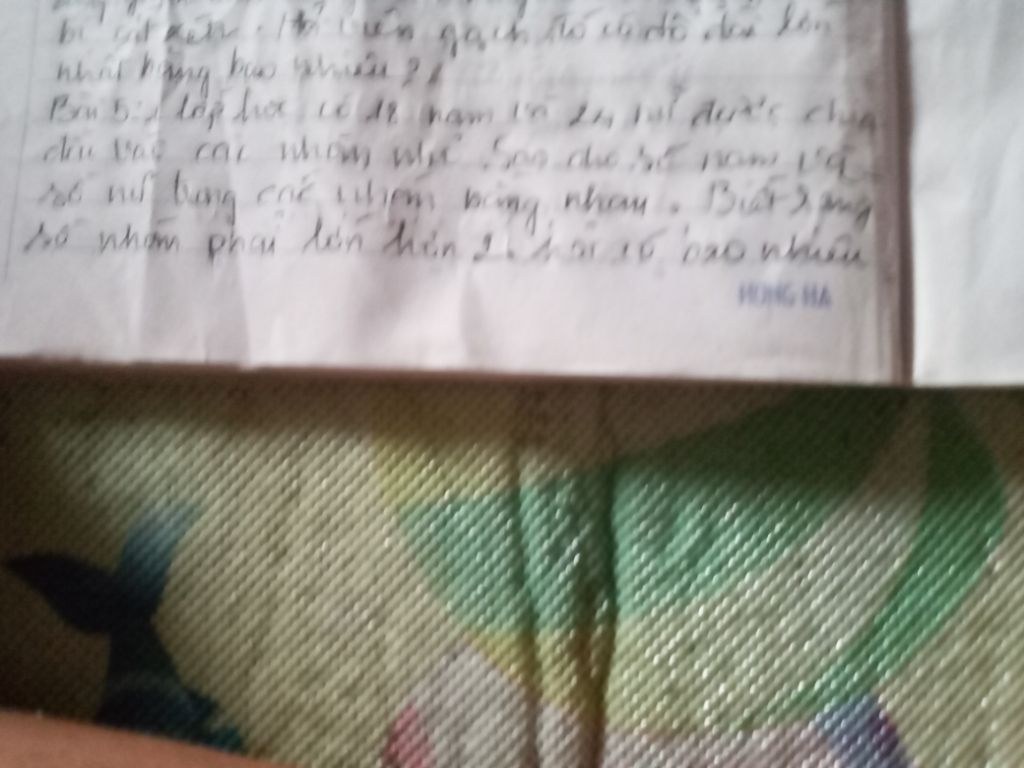 gạch đó có độ dài lớn
nhất bằng bao nhiêu?
Bài 5: 1 lớp học có 18 nam và 24 nữ được chia
đều vào các nhóm nhỏ sao cho số nam và
số nữ trong các nhóm bằng nhau. Biết rằng
số nhóm phải lớn hơn 2. hỏi có bao nhiêu
HONG HA